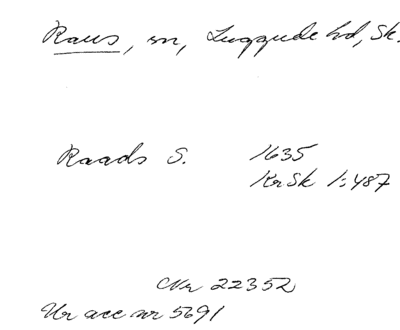 Raus, sn, Luggude hd, Sk.
Raads S. 1635
KrSk 1:487
Nr 22352
Ur acc nr 5691